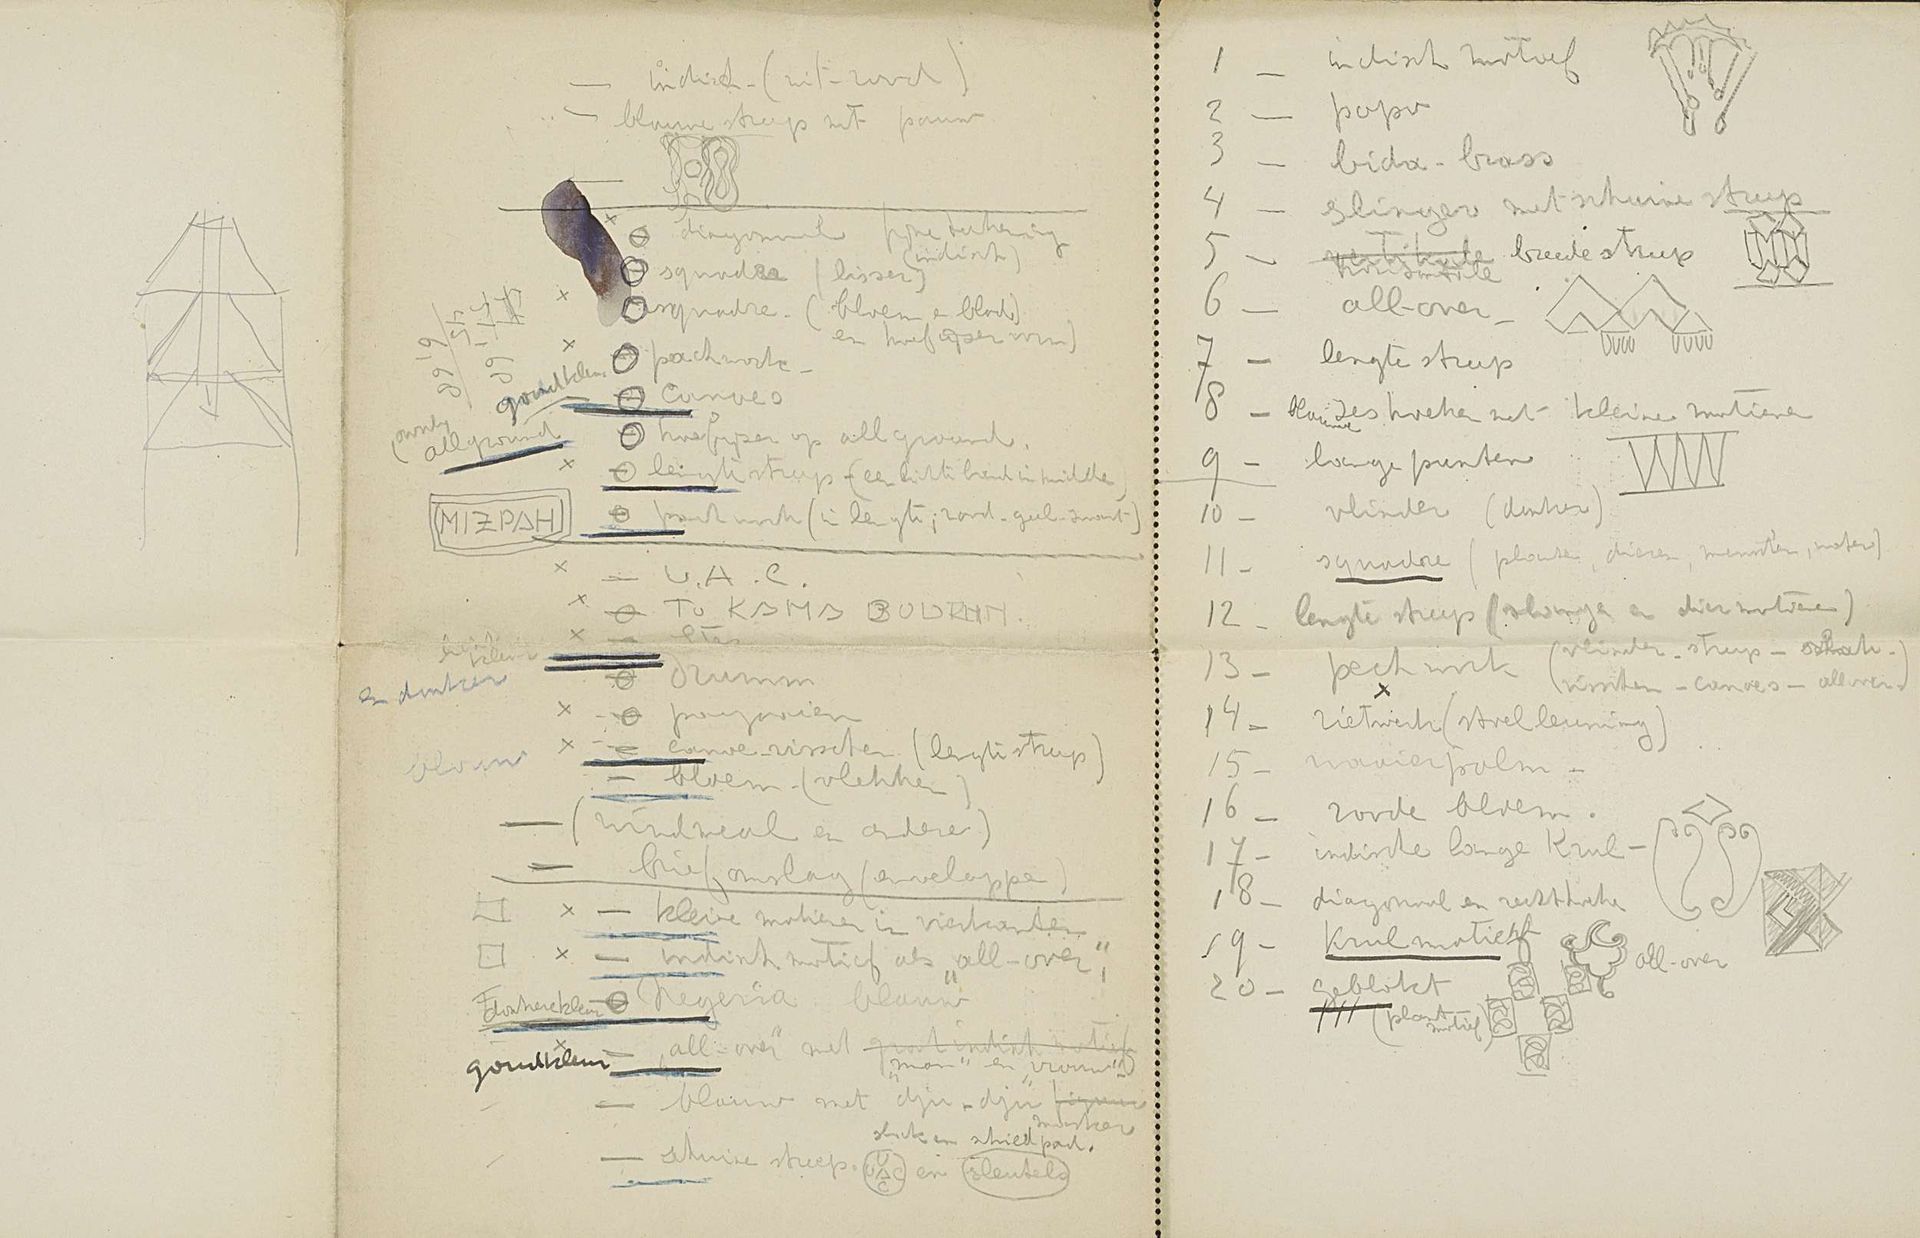 — indisch - (wit-rood)
— blauwe streep met pauw
diagonaal fijne tekening
(indisch)
squadre (lisser)
squadre - (bloem en blad)
en hoefijzer vorm)
patchwork -
goudkleur
Canvas
allground
hoefijzer op allground.
lengte streep - (een lichte band in midden)
MIZPAH
patchwork (in lengte; rood - geel - zwart)
× — U.A.C.
×
× —
klein
en donker
drumm
× papegaaien
× — canoe visschen (lengte streep)
blauw
— bloem - (vlekken)
— (windmeal en andere)
— briefomslag (enveloppe)
× — kleine motieven in vierkanten
× — indisch motief als „all-over"
Negeria blauw
goudkleur
× — „all-over" met groot indisch motief
„man" en „vrouw"
— blauw met dju-dju figuur
maskers
slak en schildpad.
— schuine streep. UAC en sleutels
1 — indisch motief
2 — papv
3 — bida - brass
4 — slinger met schuine streep
5 — vertikale breede streep
horizontale
6 — all-over -
7 — lengte streep
8 — blauwe zeshoeken met kleine motieven
9 — lange punten
10 — vlinder (donker)
11 — squadre (planten, dieren, menschen, water)
12 — lengte streep (slange en diermotieven)
13 — pechwork (vlinder - streep - schak -
visschen - canoes - allover.)
×
14 — rietwerk (stoelleuning)
15 — waaierpalm -
16 — roode bloem.
17 — indische lange Krul -
18 — diagonaal en rechthoek
19 — Krulmotief
all-over
20 — geblokt
(plant motief)